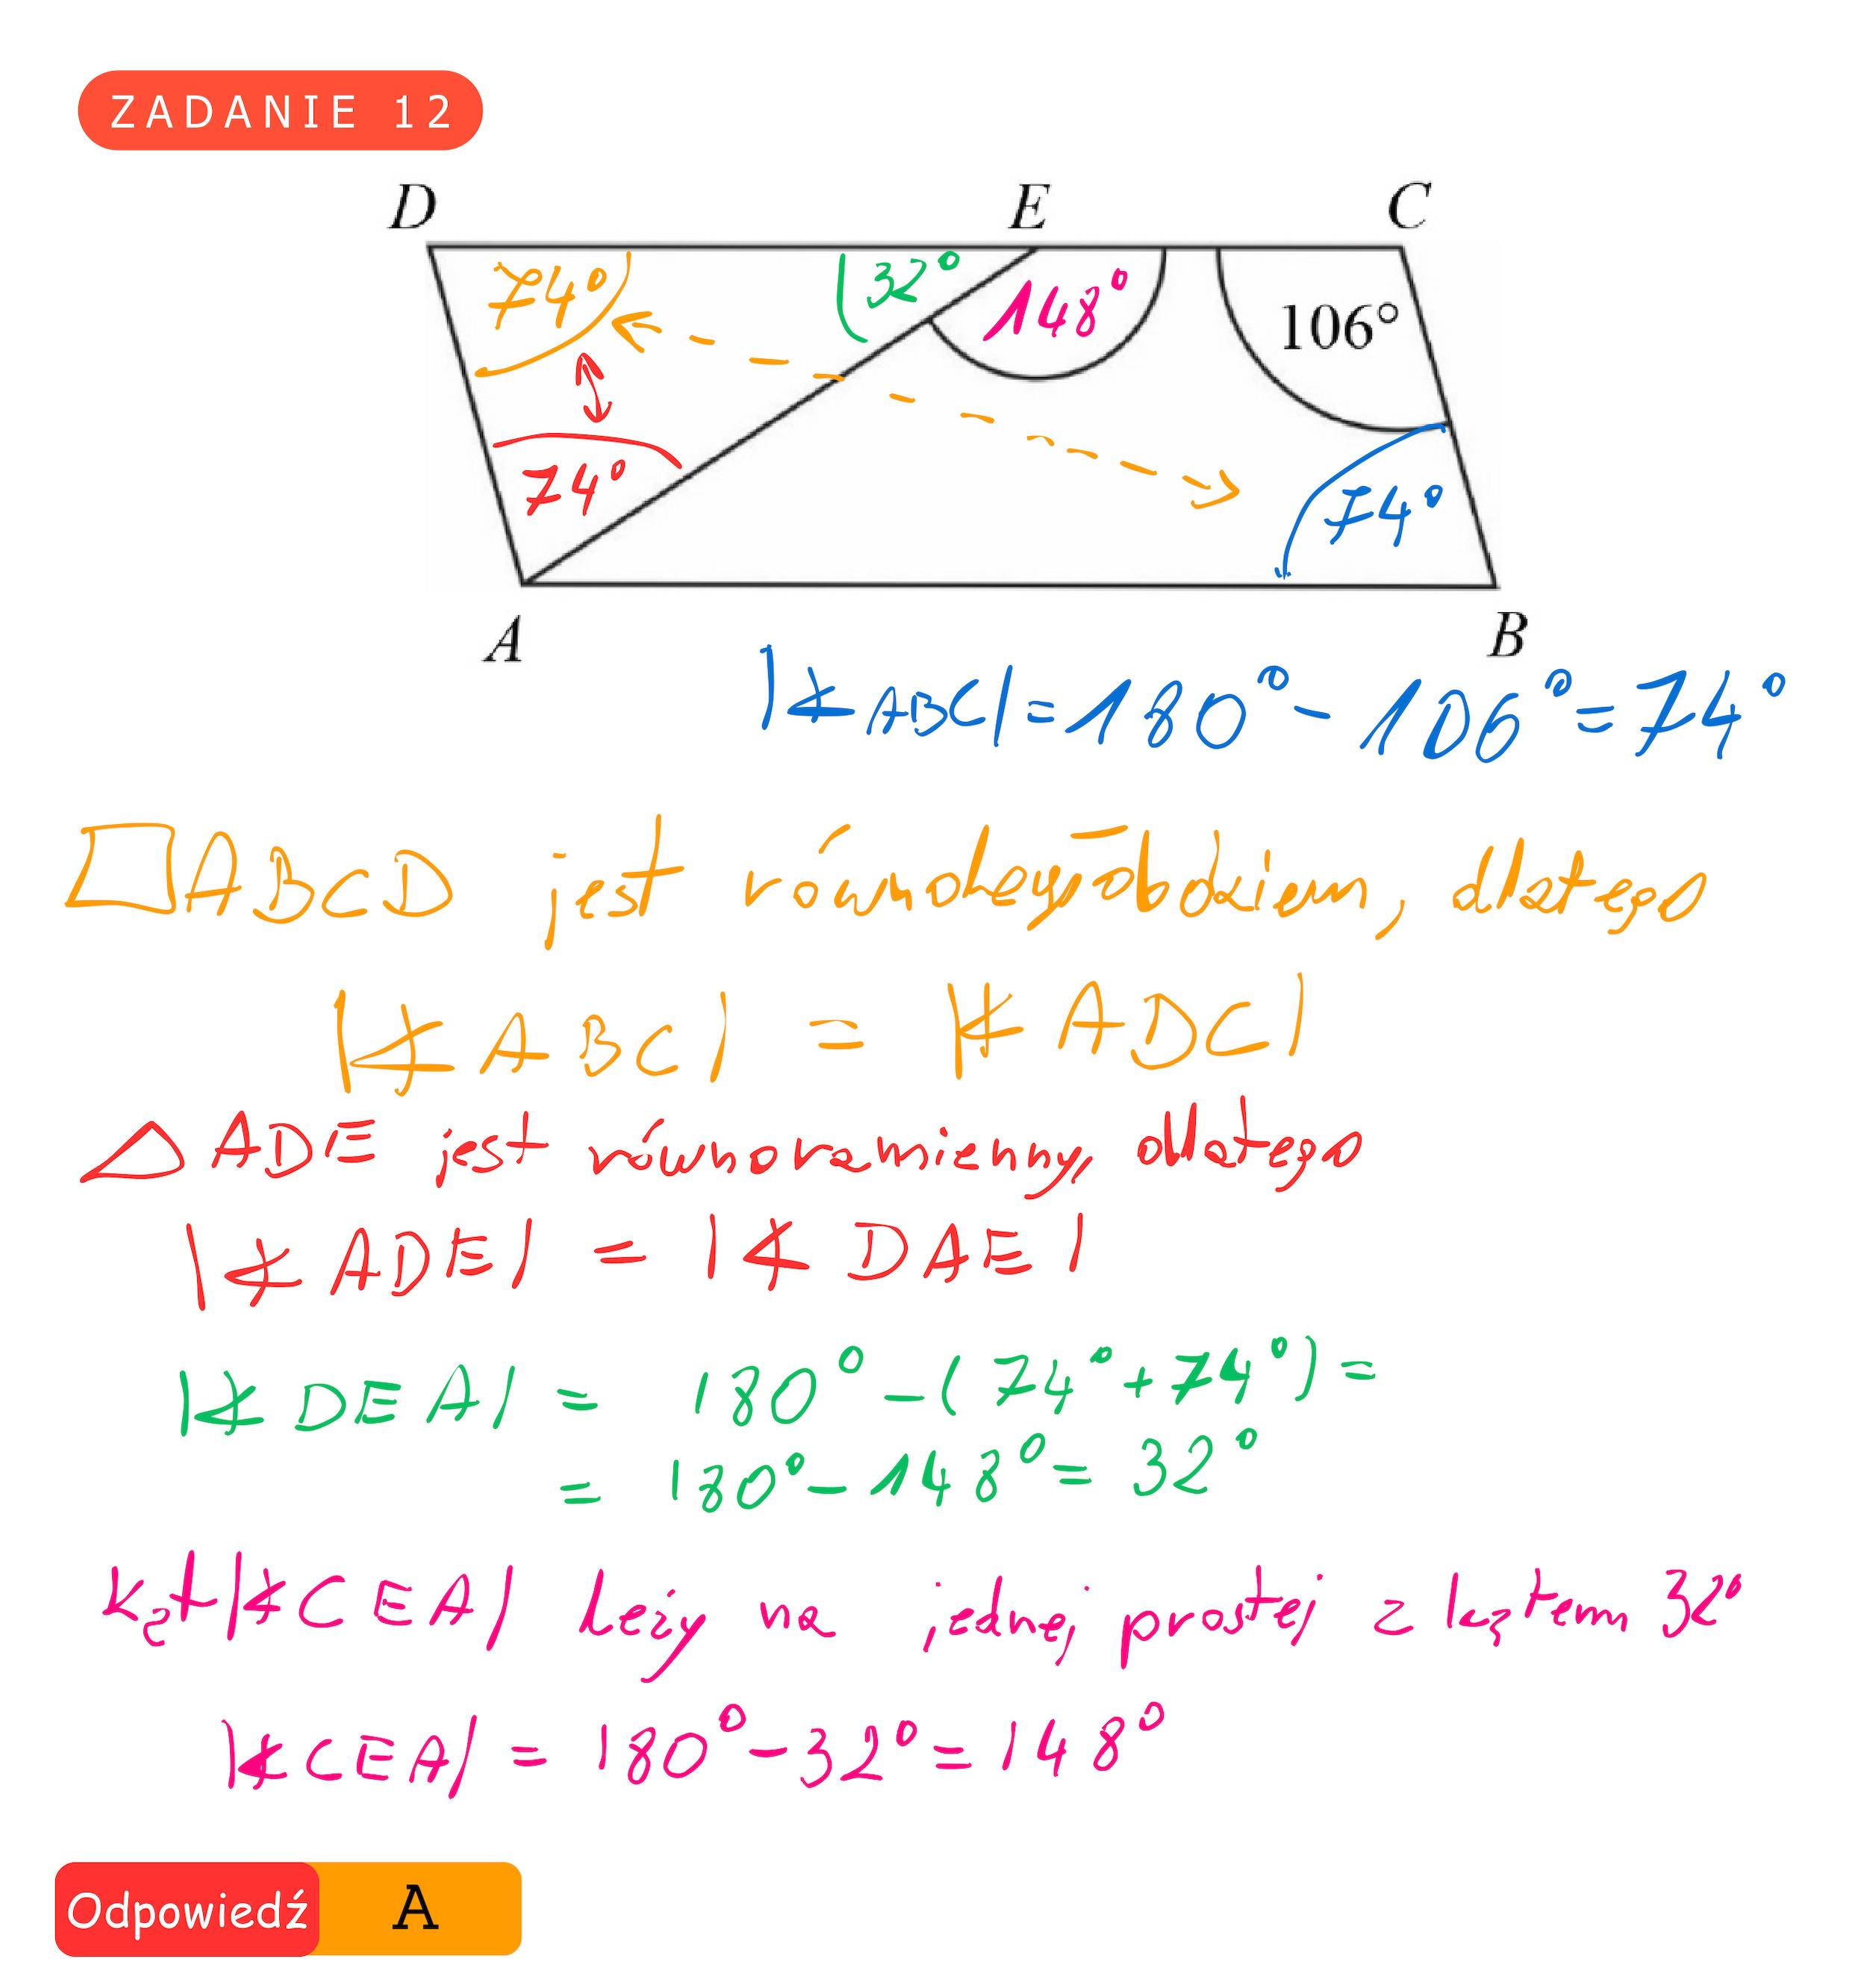 ZADANIE 12
D E C
74° 32° 148° 106°
74° 74°
A B
|∡ABC| = 180° - 106° = 74°
▱ABCD jest równoległobokiem, dlatego
|∡ABC| = |∡ADC|
△ADE jest równoramienny, dlatego
|∡ADE| = |∡DAE|
|∡DEA| = 180° - (74° + 74°) =
= 180° - 148° = 32°
Kąt |∡CEA| leży na jednej prostej z kątem 32°
|∡CEA| = 180° - 32° = 148°
Odpowiedź A